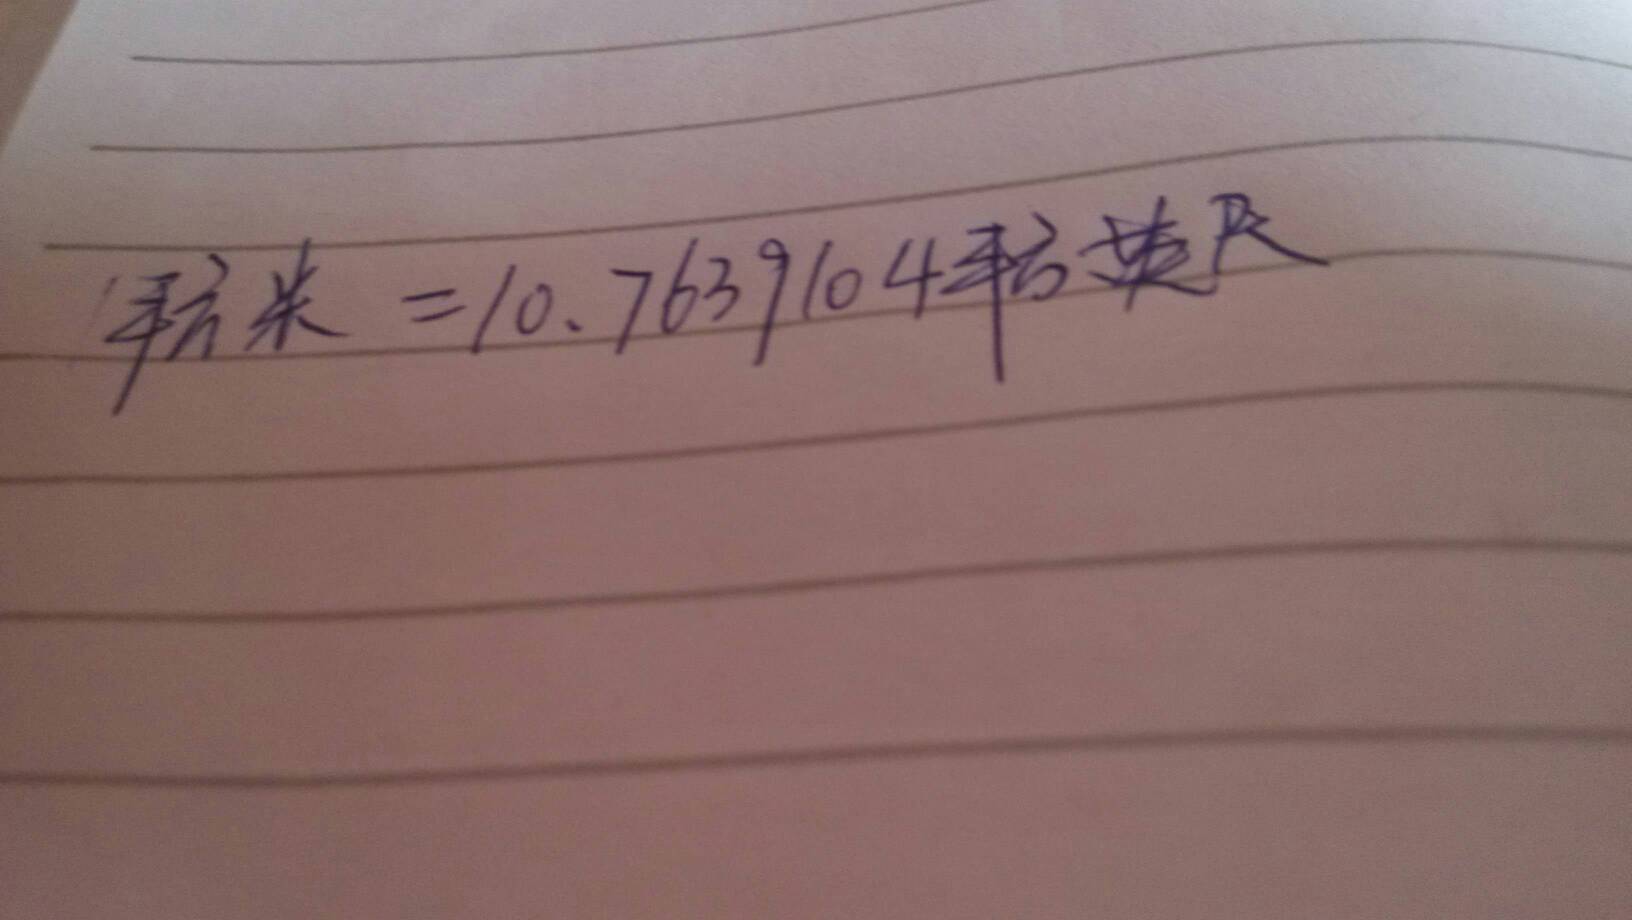 1平方米=10.7639104平方英尺